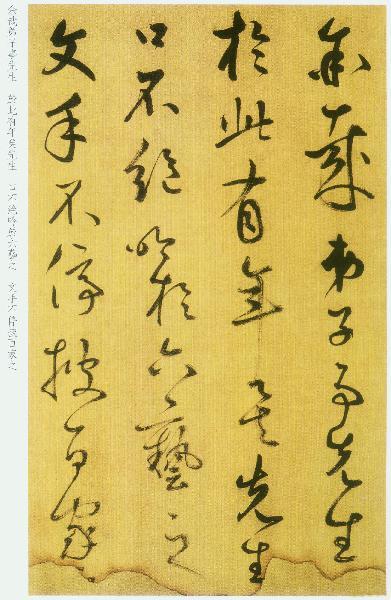 余哉弟子事先生
於此有年矣先生
口不絕吟於六藝之
文手不停披百家之
余哉弟子事先生 於此有年矣先生 口不绝吟於六藝之 文手不停披百家之